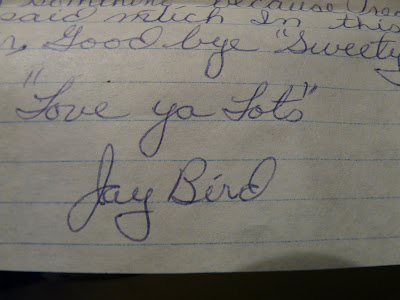 something because I rea
said much In this
, Good bye "Sweety
"Love ya Lots"
Jay Bird